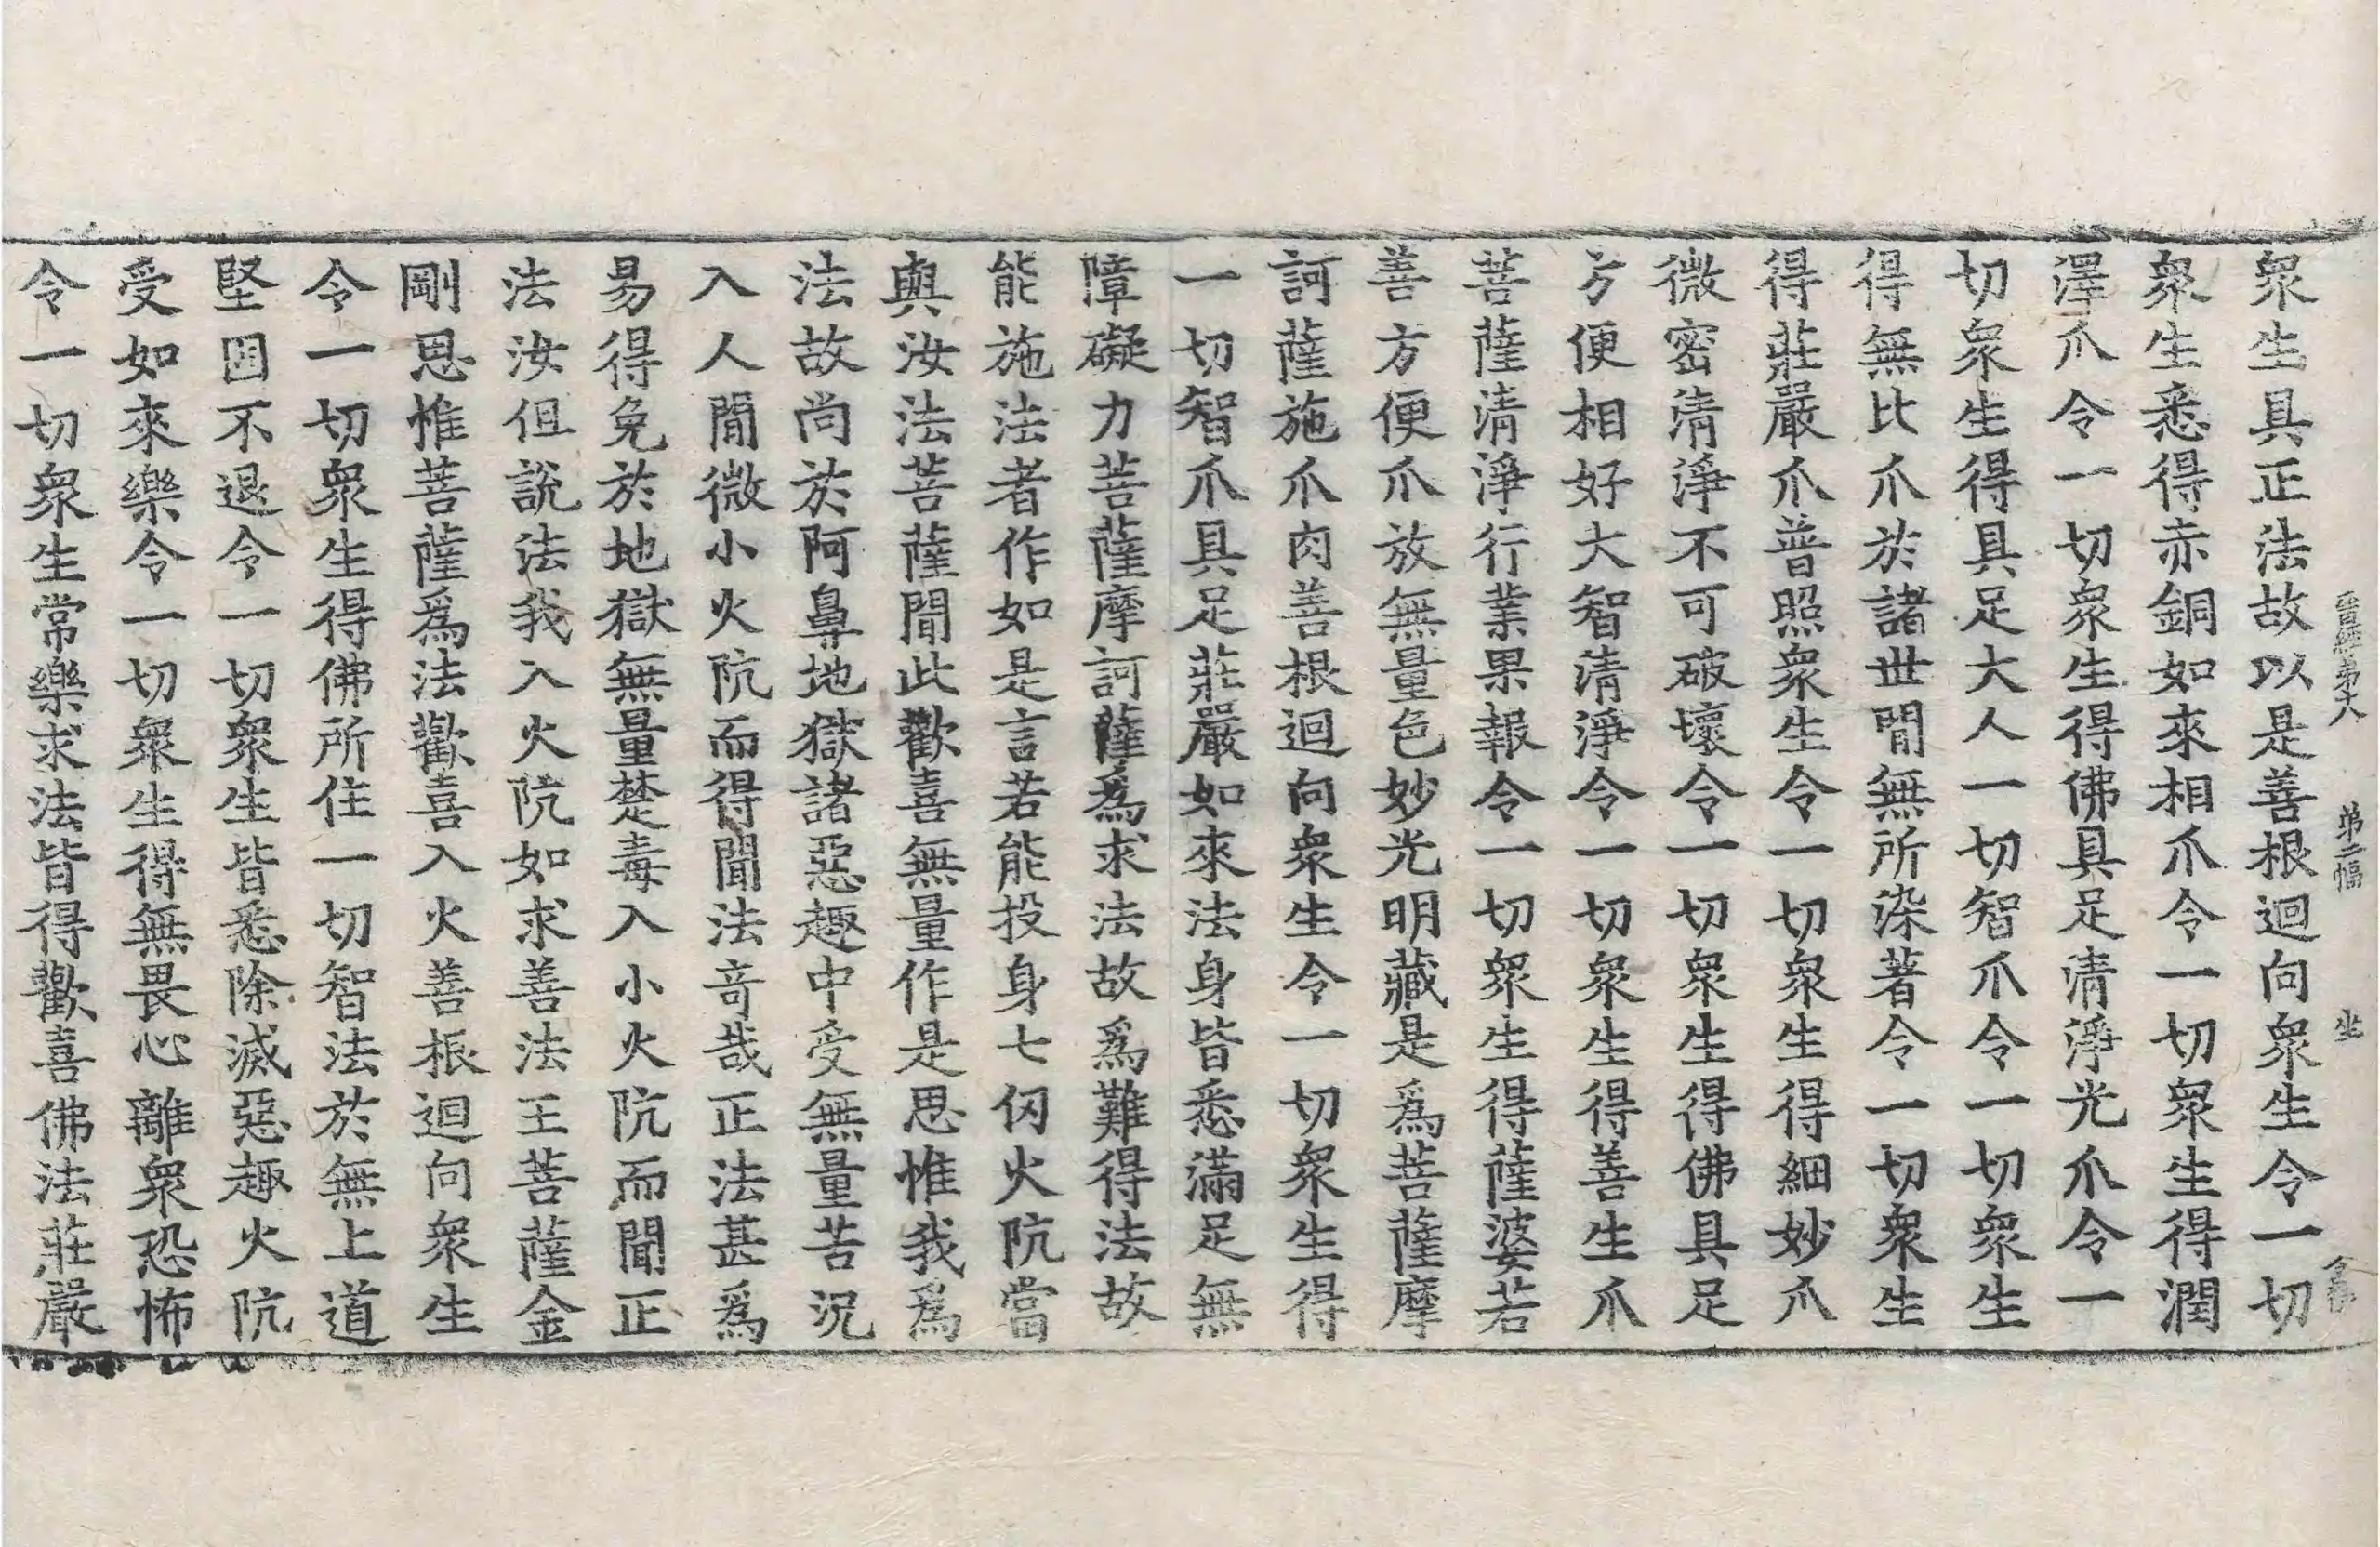 晉經第十八 第二幅 坐
衆生具正法故以是善根迴向衆生令一切
衆生悉得赤銅如來相爪令一切衆生得潤
澤爪令一切衆生得佛具足清淨光爪令一
切衆生得具足大人一切智爪令一切衆生
得無比爪於諸世間無所染著令一切衆生
得莊嚴爪普照衆生令一切衆生得細妙爪
微密清淨不可破壞令一切衆生得佛具足
方便相好大智清淨令一切衆生得善生爪
菩薩清淨行業果報令一切衆生得薩婆若
善方便爪放無量色妙光明藏是爲菩薩摩
訶薩施爪肉善根迴向衆生令一切衆生得
一切智爪具足莊嚴如來法身皆悉滿足無
障礙力菩薩摩訶薩爲求法故爲難得法故
能施法者作如是言若能投身七仞火阬當
與汝法菩薩聞此歡喜無量作是思惟我爲
法故尚於阿鼻地獄諸惡趣中受無量苦況
入人間微小火阬而得聞法奇哉正法甚爲
易得免於地獄無量楚毒入小火阬而聞正
法汝但說法我入火阬如求善法王菩薩金
剛思惟菩薩爲法歡喜入火善根迴向衆生
令一切衆生得佛所住一切智法於無上道
堅固不退令一切衆生皆悉除滅惡趣火阬
受如來樂令一切衆生得無畏心離衆恐怖
令一切衆生常樂求法皆得歡喜佛法莊嚴